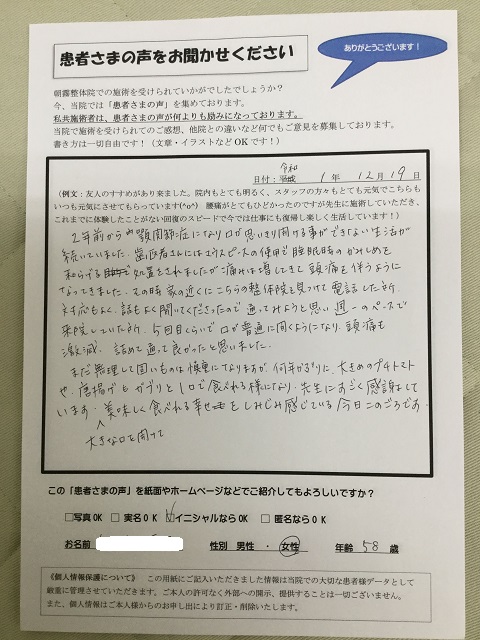 患者さまの声をお聞かせください
ありがとうございます！
朝霧整体院での施術を受けられていかがでしたでしょうか？
今、当院では「患者さまの声」を集めております。
私共施術者は、患者さまの声が何よりも励みになっております。
当院で施術を受けられてのご感想、他院との違いなど何でもご意見を募集しております。
書き方は一切自由です！（文章・イラストなどOKです！）
令和
日付：平成 1年 12月 19日
（例文：友人のすすめがあり来ました。院内もとても明るく、スタッフの方々もとても元気でこちらも
いつも元気にさせてもらっています(^o^) 腰痛がとてもひどかったのですが先生に施術していただき、
これまでに体験したことがない回復のスピードで今では仕事にも復帰し楽しく生活しています！）
2年前から顎関節症になり口が思いきり開ける事ができない生活が
続いていました。歯医者さんにはマウスピースの使用で睡眠時のかみしめを
和らげる処置をされましたが痛みは増してきて頭痛を伴うように
なってきました。その時家の近くにこちらの整体院を見つけて電話した所
対応もよく、話もよく聞いてくださったので通ってみようと思い週一のペースで
来院していた所、5回目くらいで口が普通に開くようになり、頭痛も
激減、諦めず通って良かったと思いました。
まだ無理して固いものは慎重になりますが、何年かぶりに、大きめのプチトマト
や、唐揚げもガブリと1口で食べれる様になり、先生にすごく感謝して
います。美味しく食べれる幸せをしみじみ感じている今日このごろです。
大きな口を開けて
この「患者さまの声」を紙面やホームページなどでご紹介してもよろしいですか？
□写真OK □実名OK ☑イニシャルならOK □匿名ならOK
お名前 性別 男性 ・ 女性 年齢 58 歳
《個人情報保護について》 この用紙にご記入いただきました情報は当院での大切な患者様データとして
厳重に管理させていただきます。ご本人の許可なく外部への開示、提供することは一切ございません。
また、個人情報はご本人様からのお申し出により訂正・削除いたします。